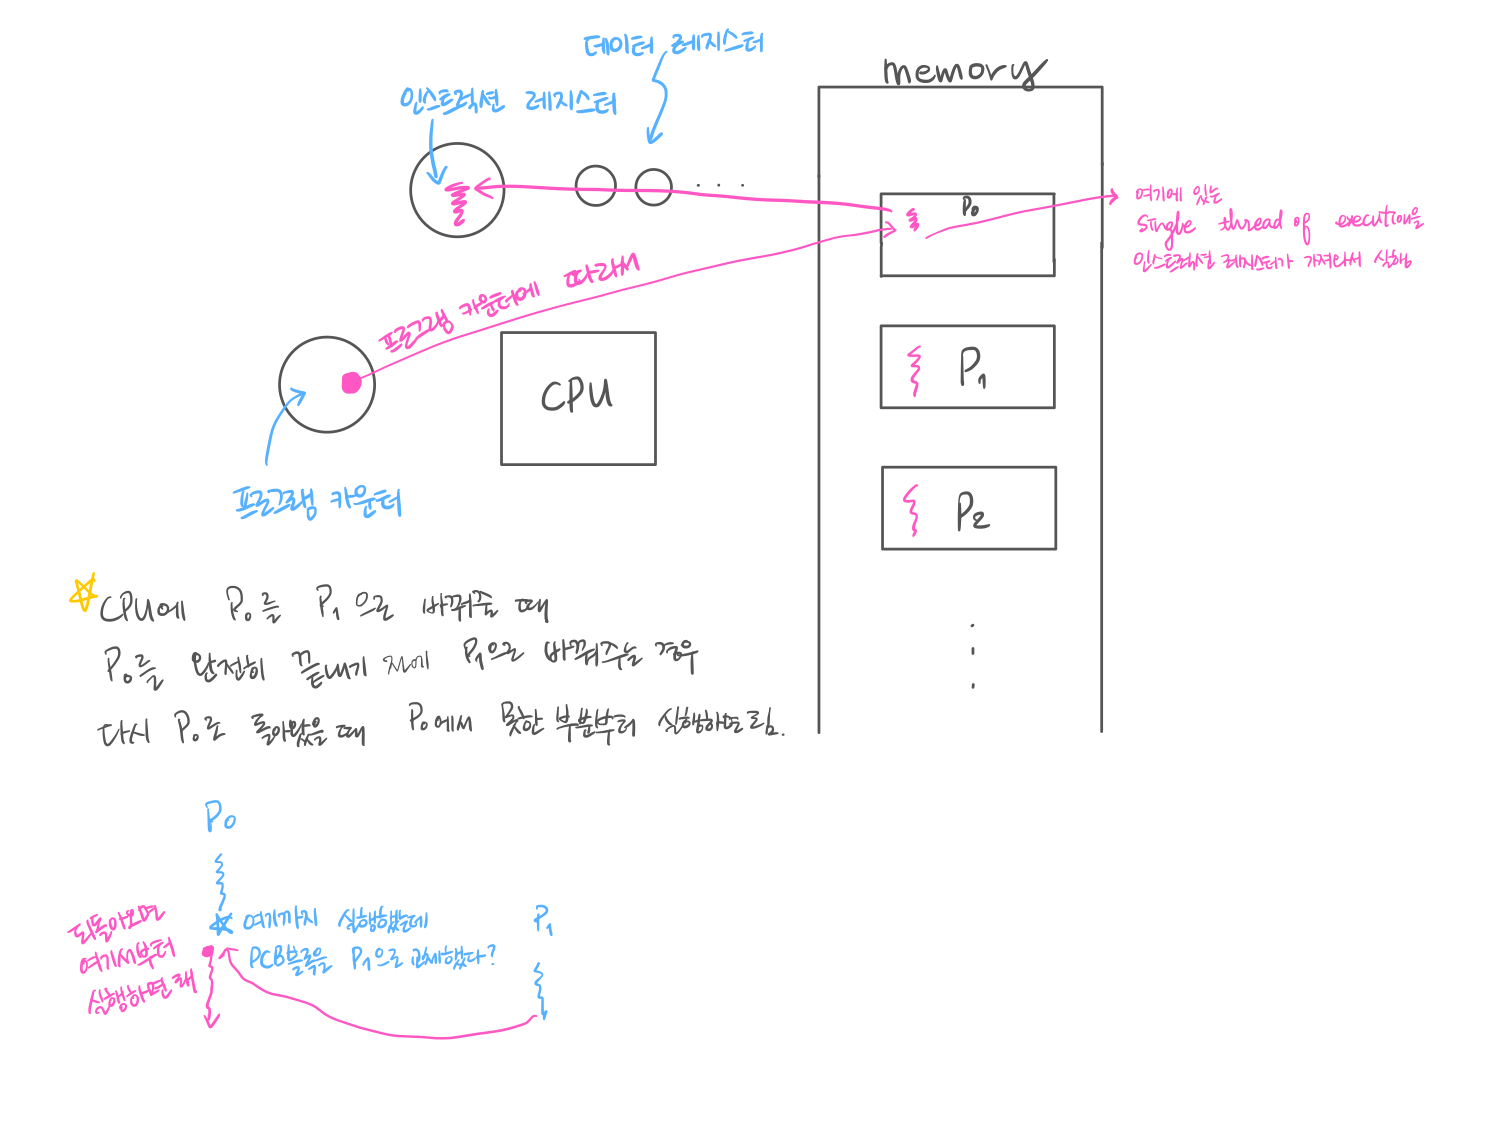 데이터 레지스터
인스트럭션 레지스터
memory
P0
여기에 있는
single thread of execution을
인스트럭션 레지스터가 가져와서 실행
프로그램 카운터에 따라서
CPU
P1
프로그램 카운터
P2
CPU에 P0를 P1으로 바꿔줄 때
P0를 완전히 끝내기 전에 P1으로 바꿔주는 경우
다시 P0로 돌아왔을 때 P0에서 못한 부분부터 실행하면 됨.
P0
되돌아오면
여기서부터
실행하면 돼
여기까지 실행했는데
PCB블록을 P1으로 교체했다?
P1